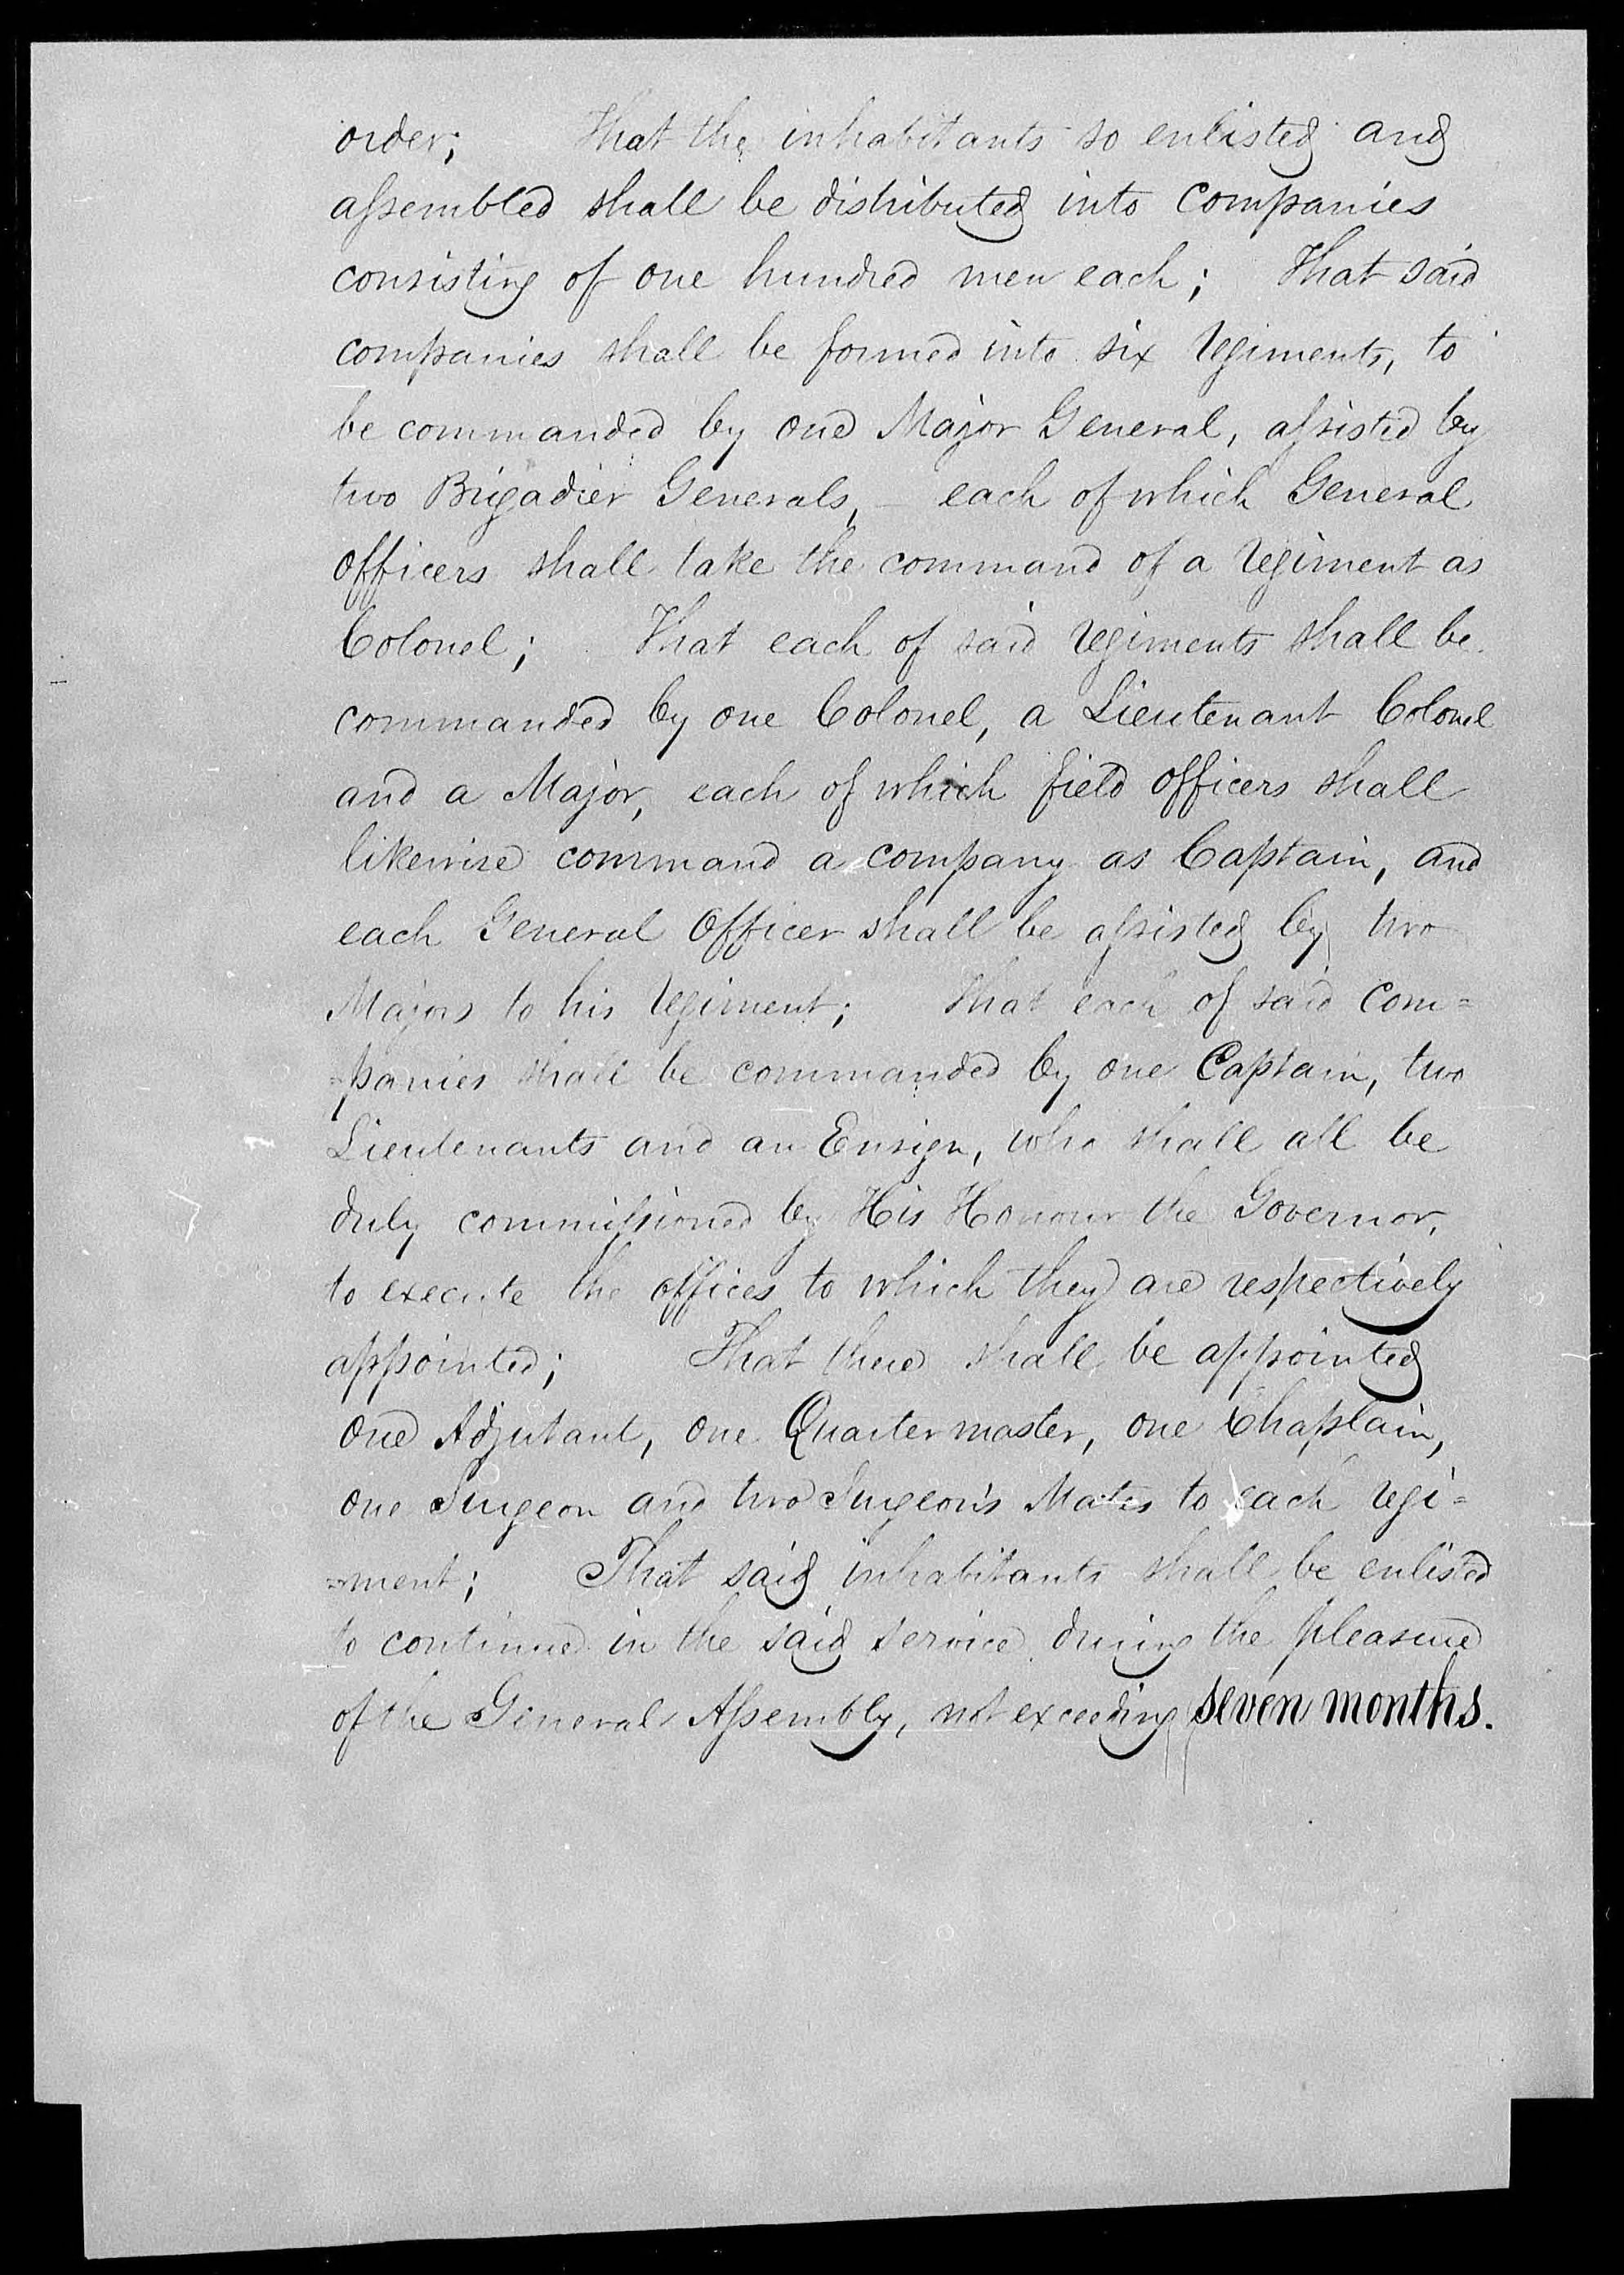 order; That the inhabitants so enlisted and
assembled shall be distributed into Companies
consisting of one hundred men each; That said
companies shall be formed into six regiments, to
be commanded by one Major General, assisted by
two Brigadier Generals, – each of which General
officers shall take the command of a regiment as
Colonel; That each of said regiments shall be
commanded by one Colonel, a Lieutenant Colonel
and a Major, each of which field officers shall
likewise command a company as Captain, and
each General Officer shall be assisted by two
Majors to his regiment; That each of said Com=
=panies shall be commanded by one Captain, two
Lieutenants and an Ensign, who shall all be
duly commissioned by His Honour the Governor,
to execute the offices to which they are respectively
appointed; That there shall be appointed
one Adjutant, one Quartermaster, one Chaplain,
one Surgeon and two Surgeon's Mates to each regi=
=ment; That said inhabitants shall be enlisted
to continue in the said service during the pleasure
of the General Assembly, not exceeding seven months.